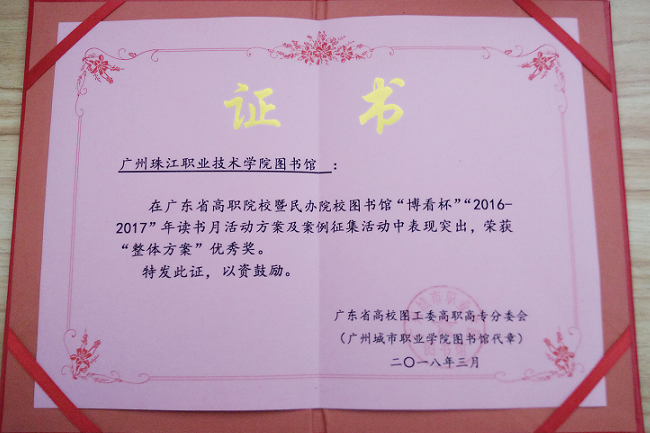 证 书
广州珠江职业技术学院图书馆 :
在广东省高职院校暨民办院校图书馆“博看杯”“2016-
2017”年读书月活动方案及案例征集活动中表现突出，荣获
“整体方案”优秀奖。
特发此证，以资鼓励。
广东省高校图工委高职高专分委会
（广州城市职业学院图书馆代章）
二〇一八年三月